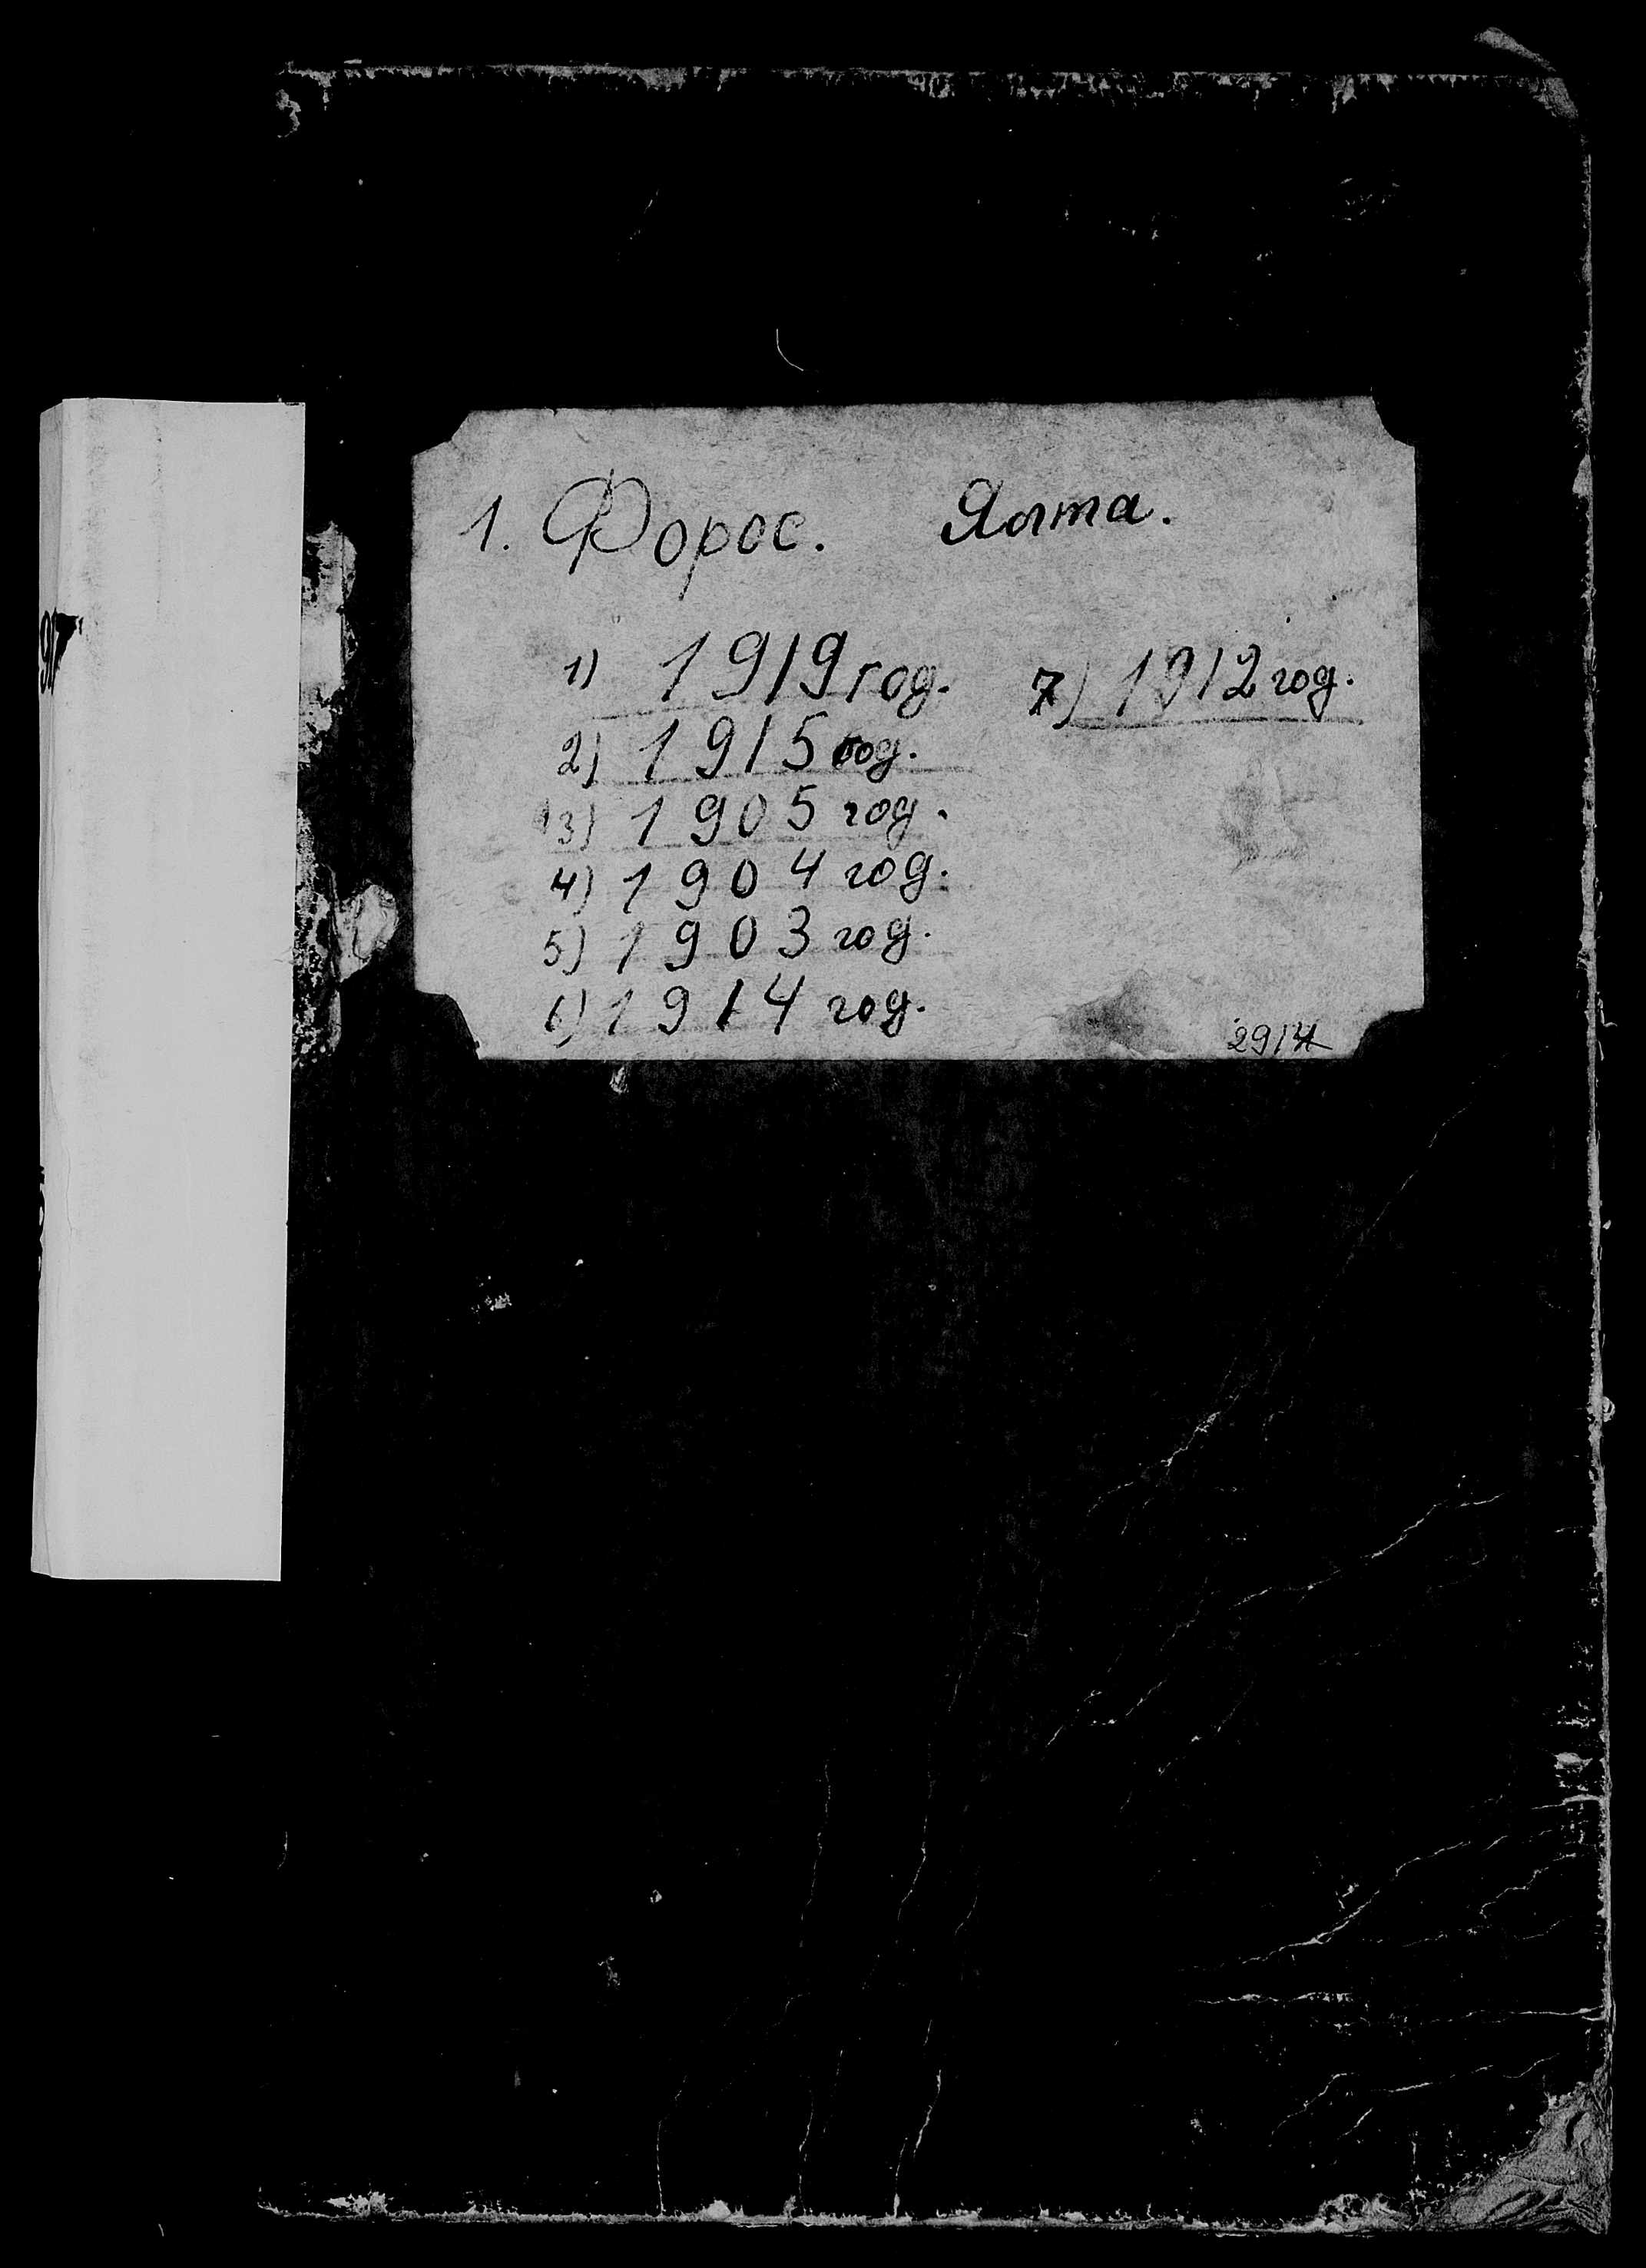 1. Форос. Ялта.
1) 1919 год. 7) 1912 год.
2) 1915 год.
3) 1905 год.
4) 1904 год.
5) 1903 год.
6) 1914 год.